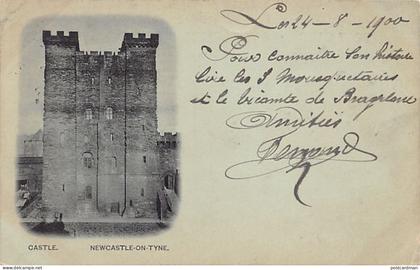 Les 24 - 8 - 1900
Pour connaître son histoire
lire les 3 Mousquetaires
et le vicomte de Bragelone
Amitiés
CASTLE. NEWCASTLE-ON-TYNE.
postcardman